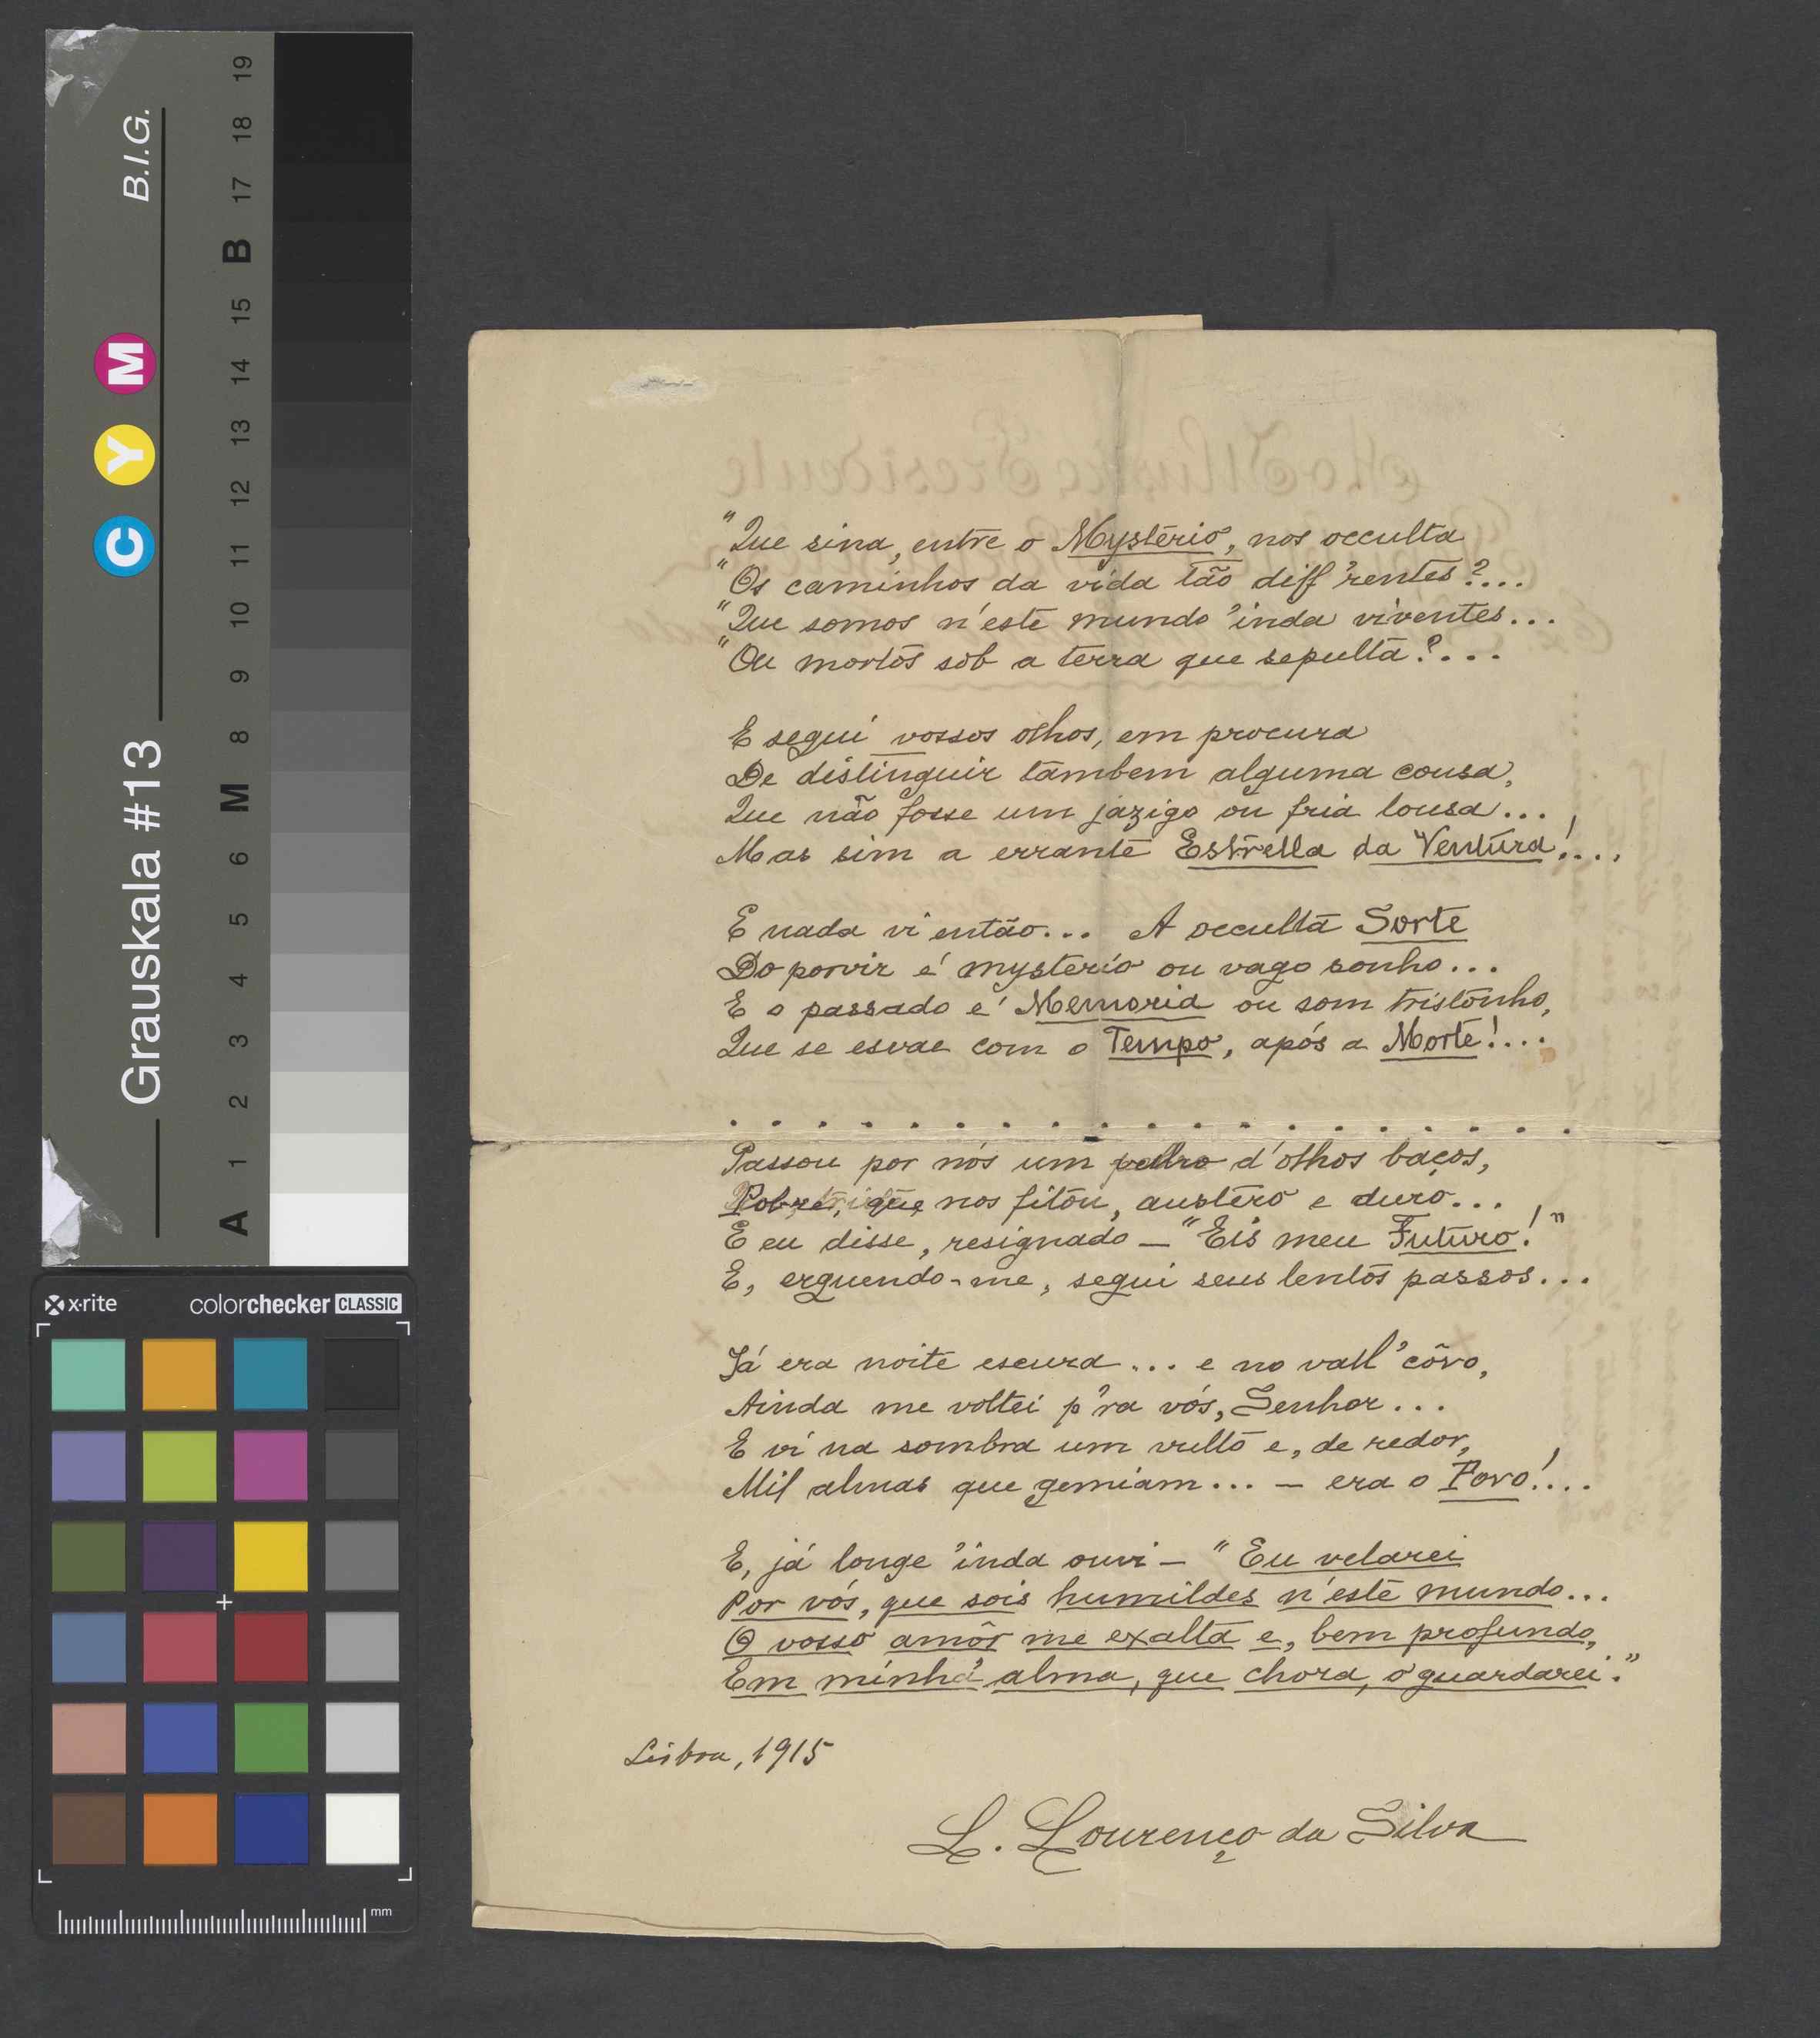 "Que sina, entre o Mystério, nos occulta
"Os caminhos da vida tão diff'rentes?...
"Que somos n'este mundo 'inda viventes...
"Ou mortos sob a terra que sepulta?...
E segui vossos olhos, em procura
De distinguir tambem alguma cousa,
Que não fosse um jazigo ou fria lousa...
Mas sim a errante Estrella da Ventura!...
E nada vi então... A occulta Sorte
Do porvir é mysterio ou vago sonho...
E o passado é Memoria ou som tristonho,
Que se esvae com o Tempo, após a Morte!...
. . . . . . . . . . . . . . . . . . . .
Passou por nós um d'olhos baços,
Pobre, que nos fitou, austero e duro...
E eu disse, resignado — "Eis meu Futuro!"
E, erguendo-me, segui seus lentos passos...
Já era noite escura... e no vall' côvo,
Ainda me voltei p'ra vós, Senhor...
E vi na sombra um vulto e, de redor,
Mil almas que gemiam... — era o Povo!...
E, já longe 'inda ouvi — "Eu velarei
Por vós, que sois humildes n'este mundo...
O vosso amôr me exalta e, bem profundo,
Em minha alma, que chora, o guardarei."
Lisboa, 1915
L. Lourenço da Silva
Grauskala #13
C Y M
B.I.G.
A 1 2 3 4 5 6 M 8 9 10 11 12 13 14 15 B 17 18 19
x-rite
colorchecker CLASSIC
mm